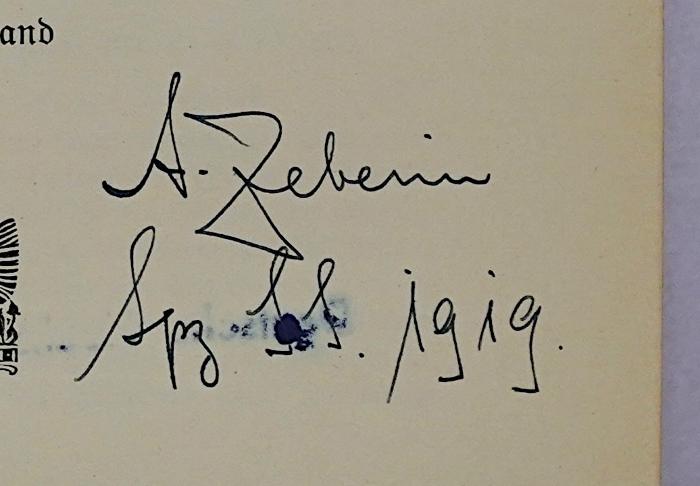 and
A. Zeberin
Lpz SS. 1919.